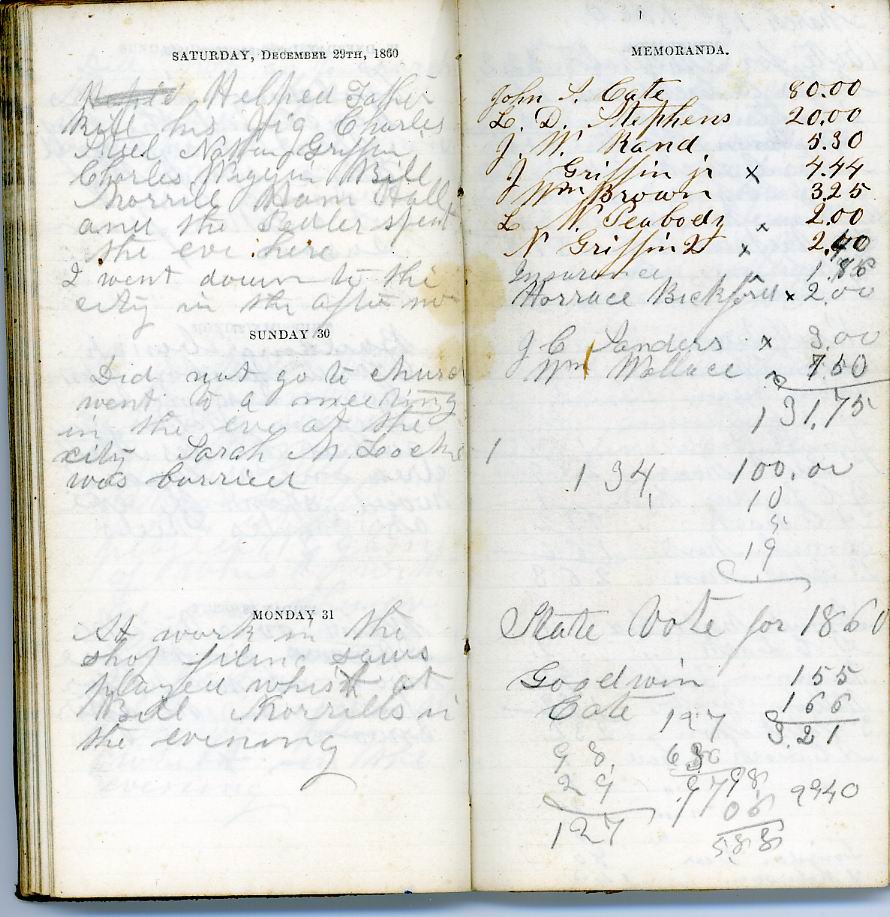 SATURDAY, DECEMBER 29TH, 1860
Helped Father
Kill his Pig Charles
Nathan Griffin
Charles Bill
Morrill Hall
and the Pedler spent
the eve here
I went down to the
city in the after no
SUNDAY 30
Did not go to churc
went to a meeting
in the eve at the
city Sarah M. Locke
was burried
MONDAY 31
At work in the
shop fileing saws
played whist at
Bill Morrills in
the evening
MEMORANDA.
John S. Cate 80.00
L. D. Stephens 20.00
J. W. Rand 5.30
J Griffin jr x 4.44
Wm Brown 3.25
L. N. Peabody x 2.00
N. Griffin 2d x 2.40
Insurance 1.86
Horrace Bickford x 2.00
J C Sanders x 3.00
Wm Wallace x 7.50
131.75
1
134 100.00
10
5
19
State Vote for 1860
Goodwin 155
Cate 166
197 321
98
29
127
9940
588